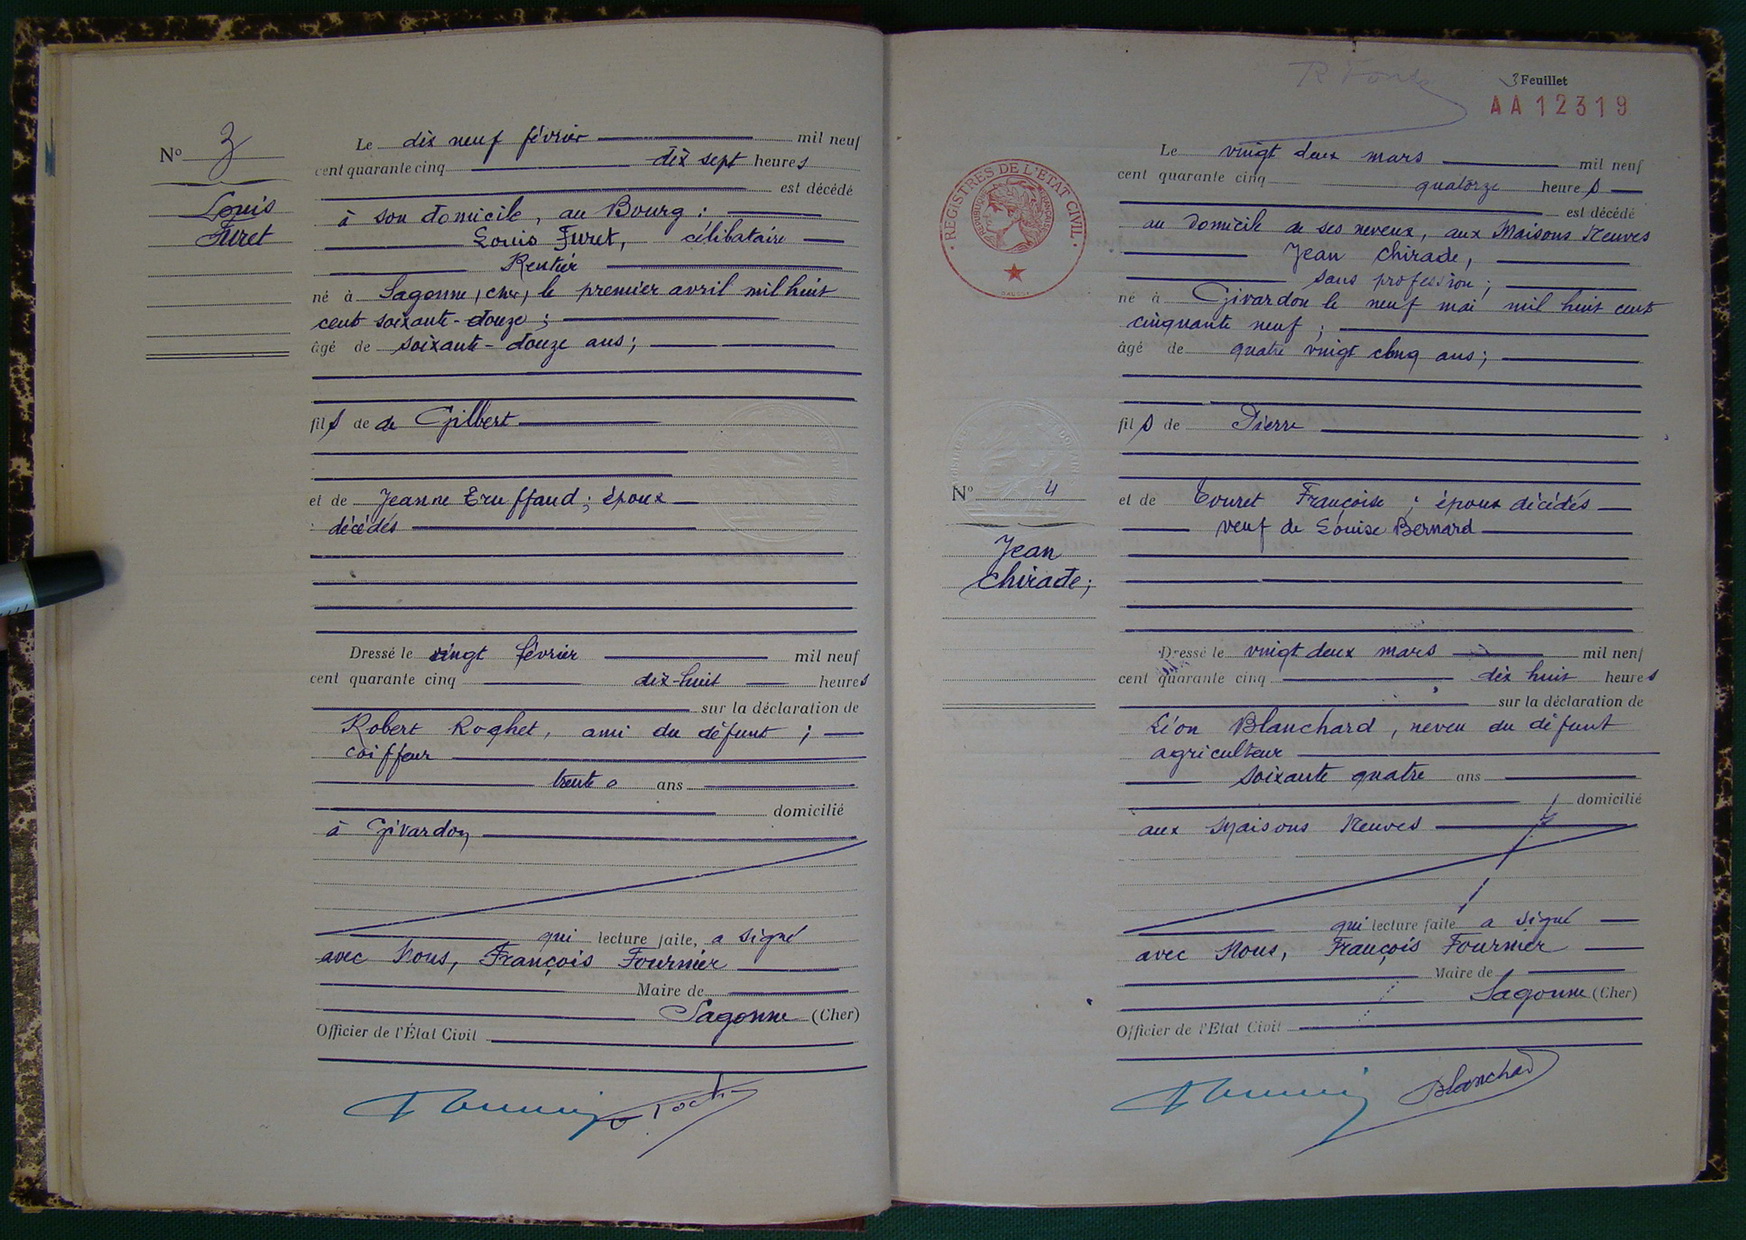 Nº 3
Louis
Furet
Le dix neuf février mil neuf
cent quarante cinq dix sept heures
est décédé
à son domicile, au Bourg :
Louis Furet, célibataire
Rentier
né à Sagonne, cher, le premier avril mil huit
cent soixante-douze ;
âgé de soixante-douze ans ;
fils de de Gilbert
et de Jeanne Truffaud ; époux
décédés
Dressé le vingt février mil neuf
cent quarante cinq dix-huit heures
sur la déclaration de
Robert Roghet, ami du défunt ;
coiffeur
trente ans
domicilié
à Givardon
qui lecture faite, a signé
avec Nous, François Fournier
Maire de
Sagonne (Cher)
Officier de l'État Civil
3 Feuillet
AA12319
REGISTRES DE L'ETAT CIVIL
Le vingt deux mars mil neuf
cent quarante cinq quatorze heures
est décédé
au domicile de ses neveux, aux Maisons Neuves
Jean Chirade,
sans profession ;
né à Givardon le neuf mai mil huit cent
cinquante neuf ;
âgé de quatre vingt cinq ans ;
fils de Pierre
Nº 4
Jean
Chirade ;
et de Touret Françoise ; époux décédés
veuf de Louise Bernard
Dressé le vingt deux mars mil neuf
cent quarante cinq dix huit heures
sur la déclaration de
Léon Blanchard, neveu du défunt
agriculteur
soixante quatre ans
domicilié
aux Maisons Neuves
qui lecture faite a signé
avec Nous, François Fournier
Maire de
Sagonne (Cher)
Officier de l'Etat Civil
Blanchard